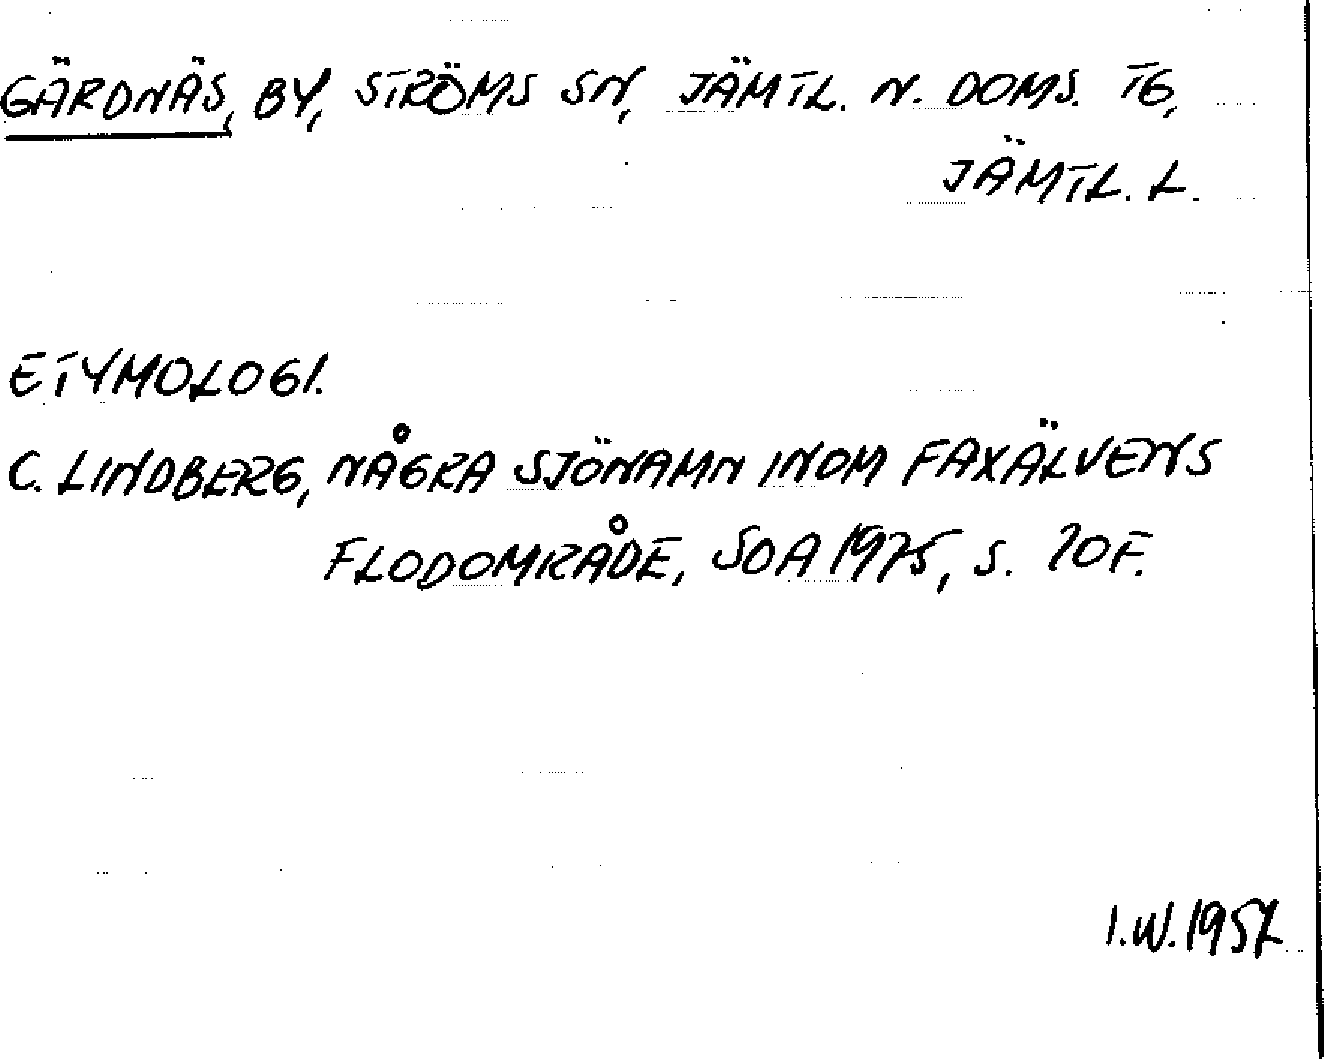 GÄRDNÄS, BY, STRÖMS SN, JÄMTL. N. DOMS. TG,
JÄMTL. L.
ETYMOLOGI.
C. LINDBERG, NÅGRA SJÖNAMN INOM FAXÄLVENS
FLODOMRÅDE, SOA 1975, S. 20 F.
I.W. 1957